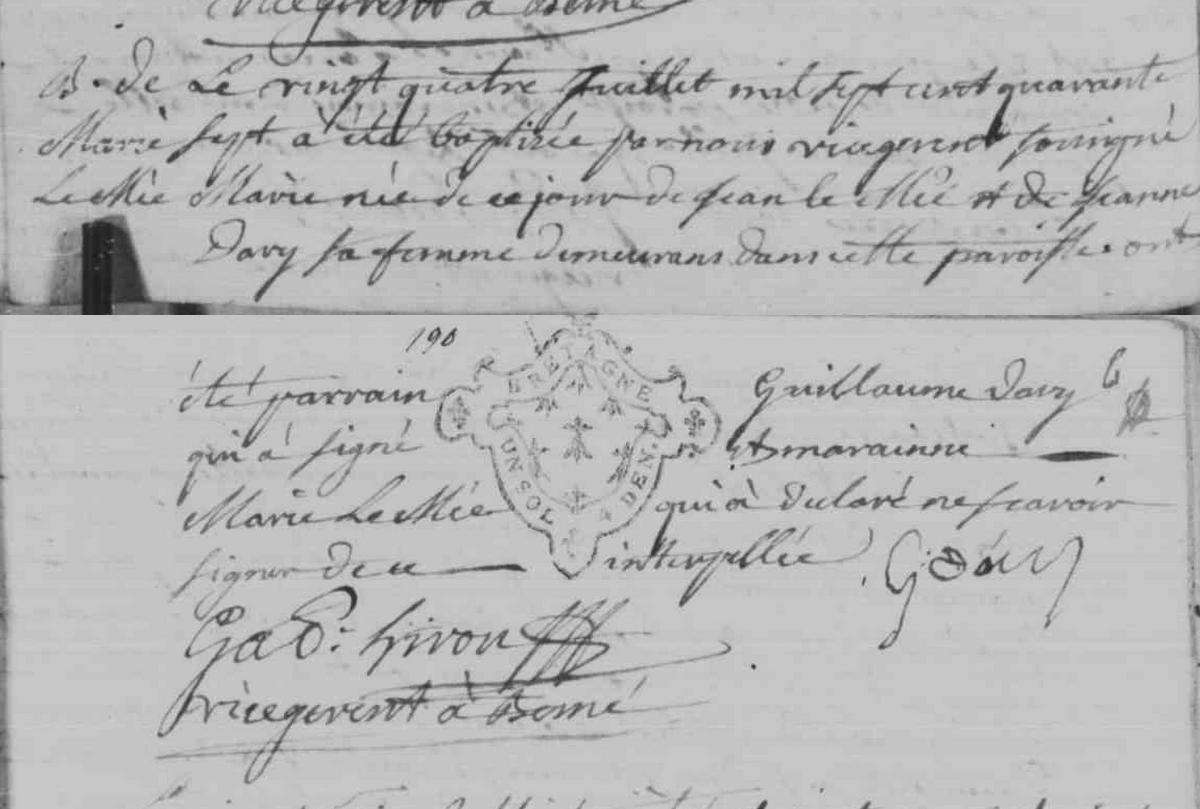 vicegerent à Bemé
B. de Le vingt quatre Juillet mil sept cent quarante
Marie sept a été baptizée par nous vicegerent sousigné
Le Mée Marie née de ce jour de Jean le Mée et de Jeanne
Davy sa femme demeurans dans cette paroisse. ont
190
été parrain Guillaume Davy
qui à signé et marainne
Marie Le Mée qui à declaré ne scavoir
signer de ce interpellée
BRETAGNE
UN SOL 4 DEN.
vicegerent à Bemé